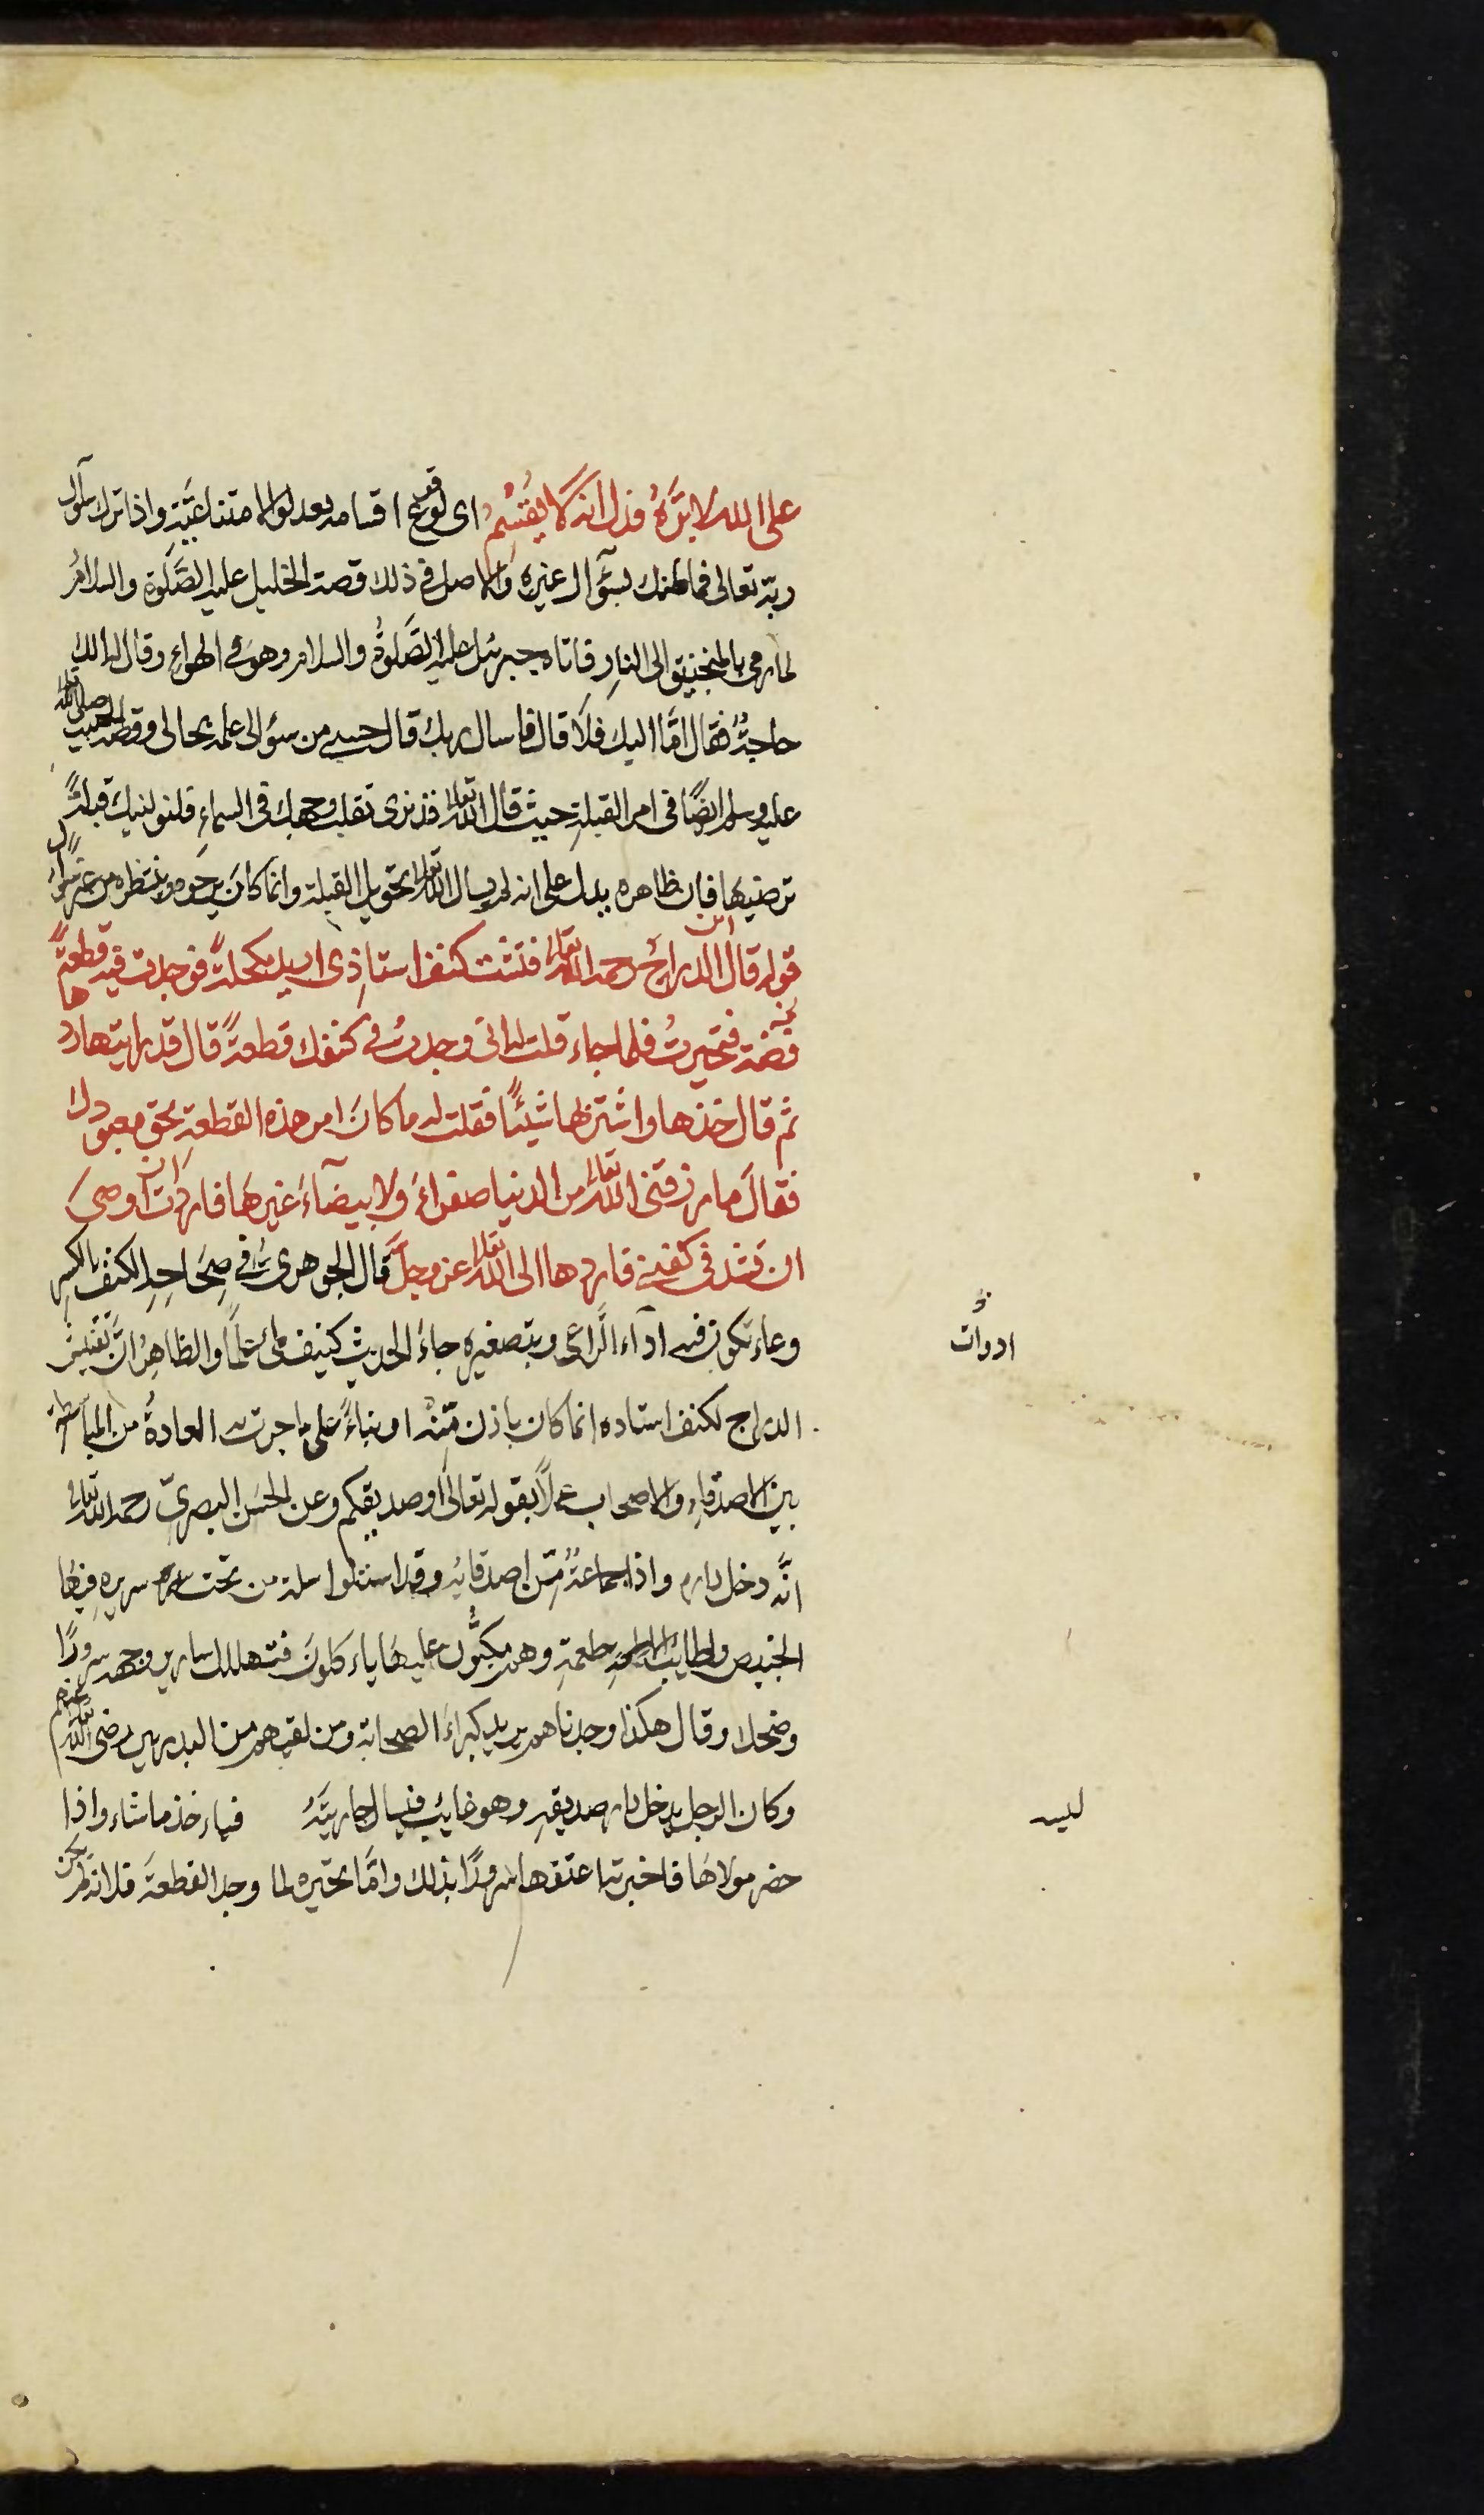 على الله لابرّهُ فدل انه لا يُقْسِمُ اى لوقوع اقسامه بعد لو الامتناعيّةِ واذا ترك سؤال
ربّه تعالى فما ظنك بسؤال غيره والاصل فى ذلك قصة الخليل عليه الصَّلوة والسلامُ
لما رمى بالمنجنيق الى النارِ فاتاه جبرئيل عليه الصَّلوةُ والسلام وهوَ فى الهواءِ وقال الك
حاجةٌ فقال امَّا اليك فلَا قال فاسال ربك قال حسبى من سؤالى علمه بحالى وقصة الحبيب صلى الله تعالى
عليه وسلم ايضًا فى امر القبلةِ حيث قال الله تعالى قد نرى تقلب وجهك فى السماءِ فلنولينك قبلةً
ترضيها فان ظاهره يدل على انه لم يسال الله تعالى تحويل القبلة وانما كانَ يرجوه وينتظره من غير سؤال
قوله قال ابن الدراج رحمه الله تعالى فتشت كنف استاذى اريد مكحلةً فوجدت فيه قطعةً
فضة فتحيرتُ فلما جاء قلت له انى وجدتُ فى كنفك قطعةً قال قد رايتها ردها
ثم قال خذها واشتر بها شيئًا فقلت له ما كانَ امر هذه القطعةِ بحق معبودك
فقالَ ما رزقنى الله تعالى من الدنيا صفراءَ ولا بيضآءَ غيرهَا فاردت ان اوصىَ
ان تشد فى كفنى فاردها الى الله تعالى عز وجلَّ قال الجوهرى فى صِحَاحِهِ الكنف بالكسرِ
وعاء تكون فيه اداء الراعى وبتصغيره جاءَ الحديث كنيف ملئ علمًا والظاهِرُ انَّ تفتيش
الدراج لكنف استاده انما كان باذن مِّنْه او بناءً على ما جرت به العادةُ من المباسطة
بين الاصدقاءِ والاصحاب عملًا بقوله تعالى او صديقكم وعن الحسَنِ البصرىّ رحمه الله تعالى
انّه دخل داره واذا جماعةٌ مّن اصدقائه وقد استلوا سلة من تحت سريره فيها
الخبيص واطايب الاطعمةِ وهم مكبُّون عليهَا ياءكلونَ فتهللت اسارير وجهه سرورًا
وضحك وقال هكذا وجدناهم يريد كبراءَ الصحابة ومن لقيهم من البدريين رضى الله تعالى عنهم
وكان الرجل يدخل دار صديقهِ وهو غايب فيسال جاريتَهُ فياءخذ ما شاء واذا
حضر مولاهَا فاخبرته اعتقها سرورًا بذلك وامَّا تحيّره لما وجد القطعةَ فلانه لم يكن
ادوات